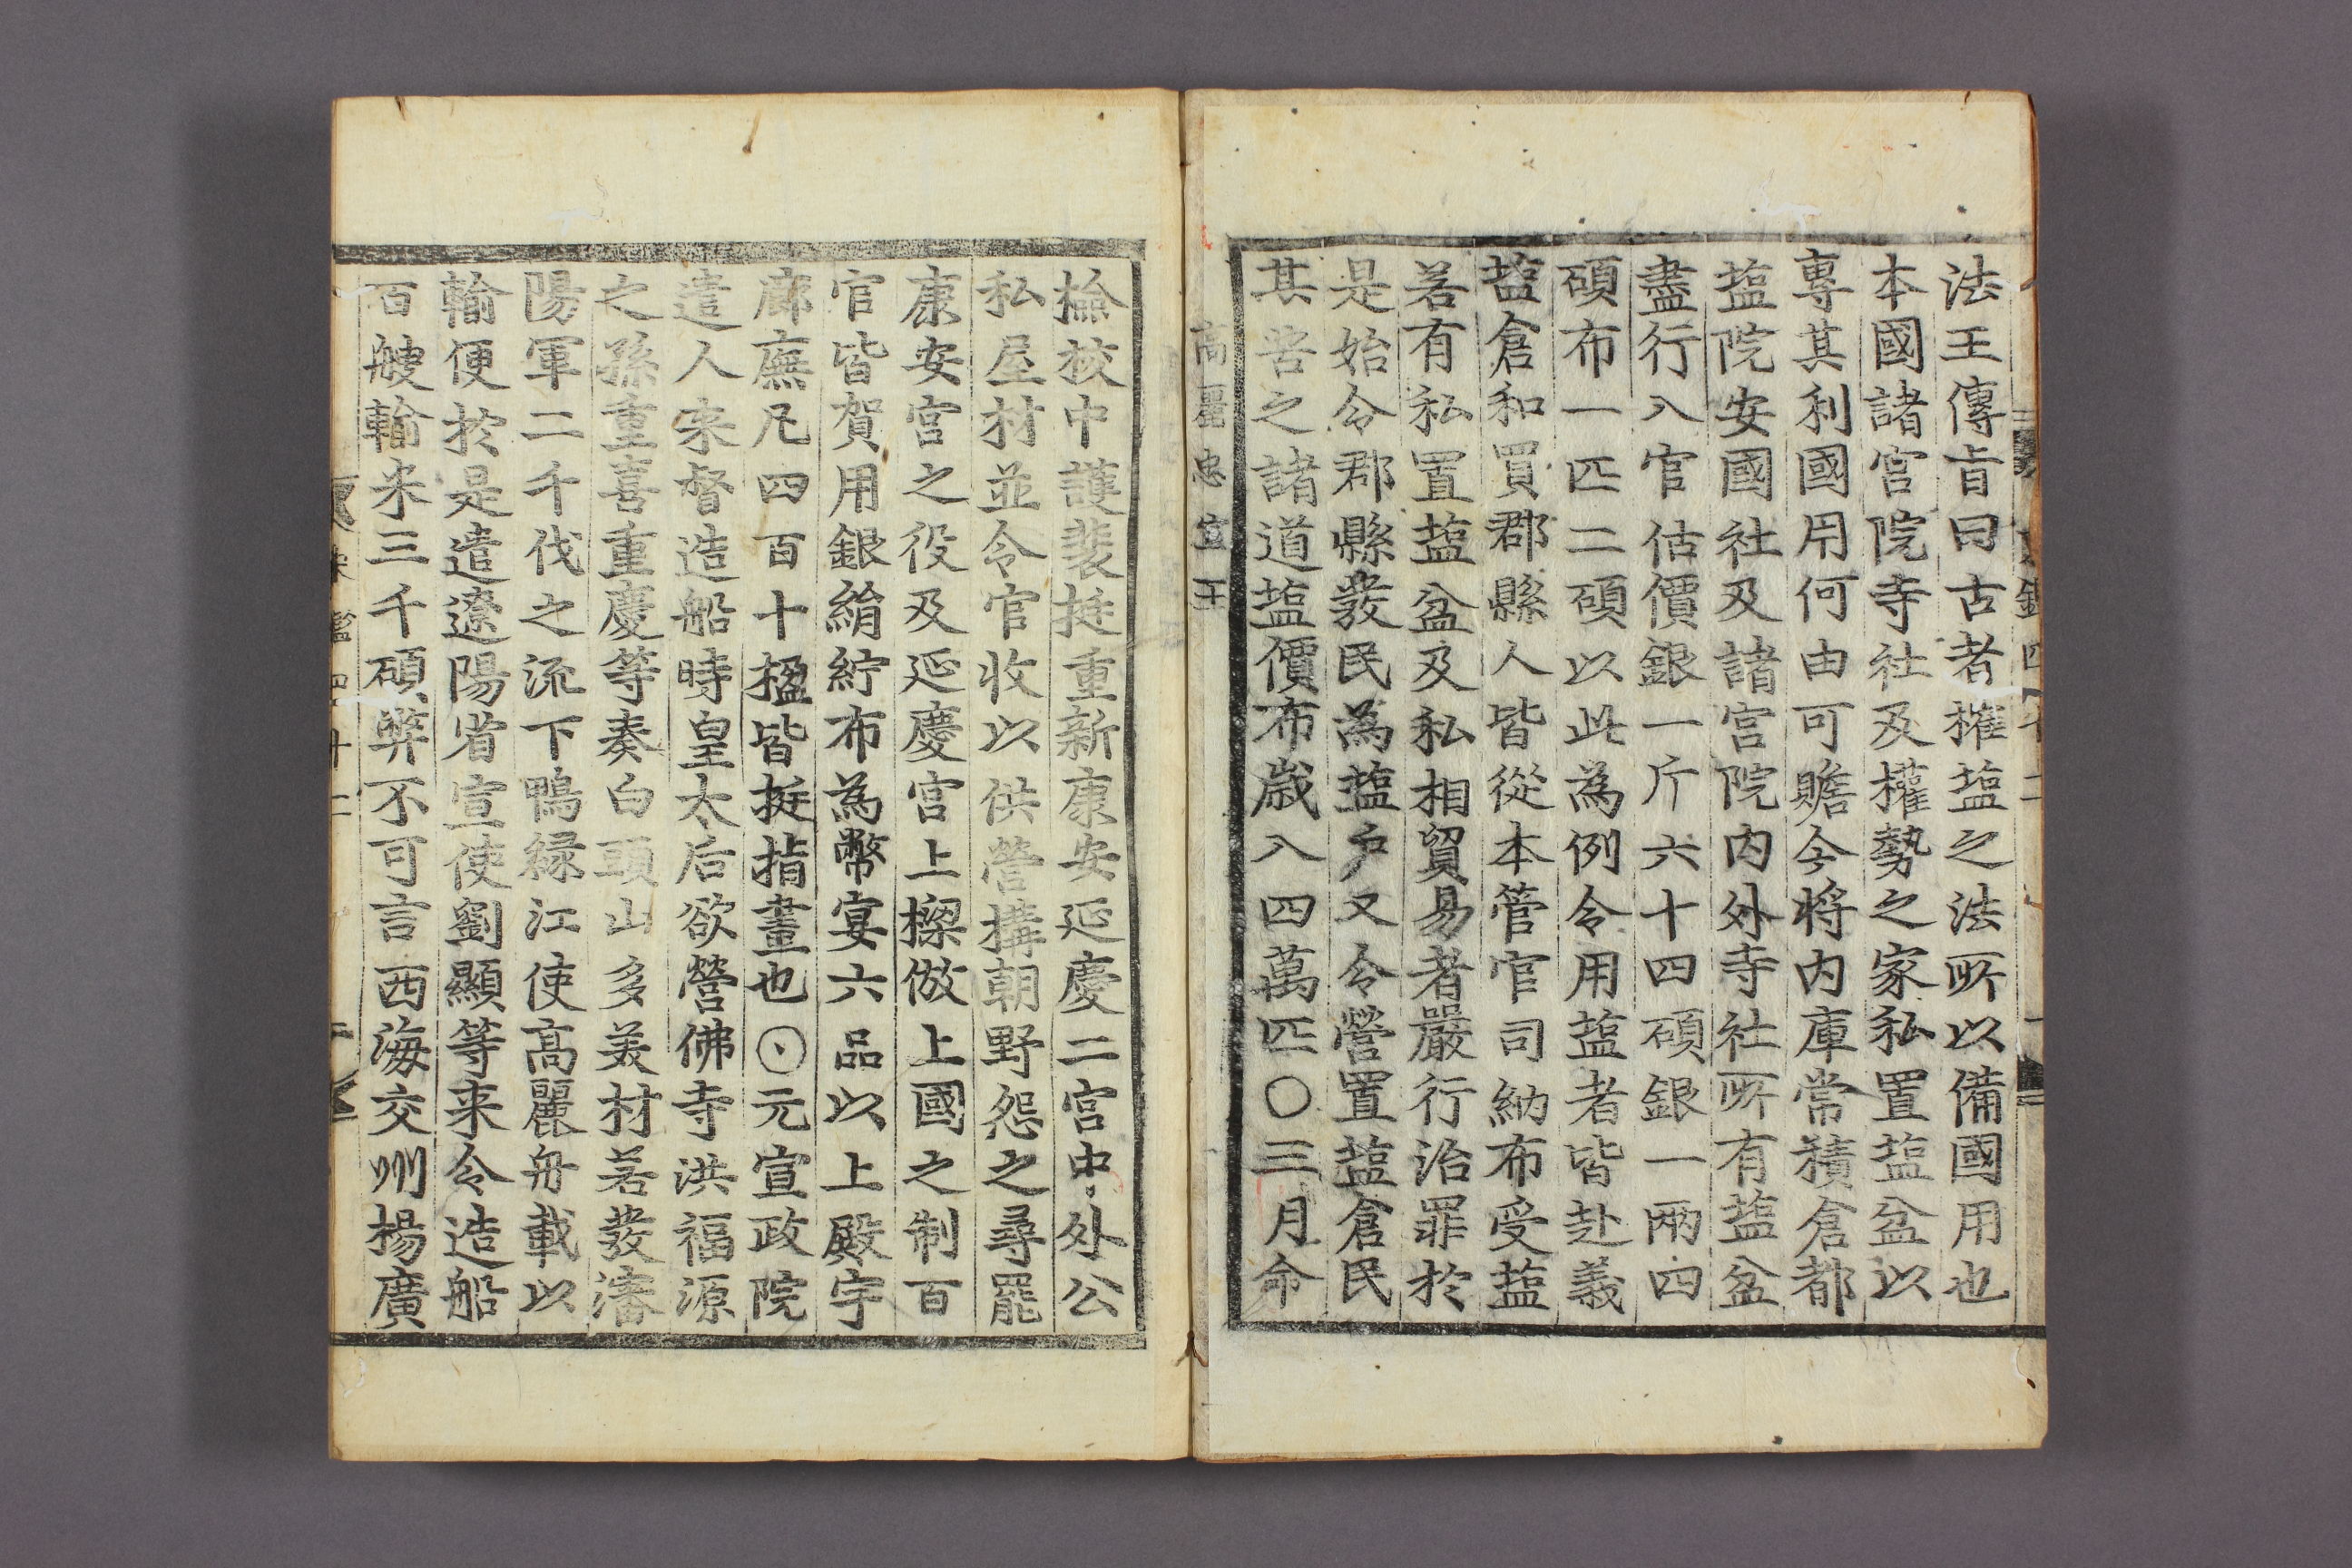 法王傳旨曰古者榷塩之法所以備國用也
本國諸宮院寺社及權勢之家私置塩盆以
專其利國用何由可贍今將内庫常積倉都
塩院安國社及諸宮院内外寺社所有塩盆
盡行入官估價銀一斤六十四碩銀一兩四
碩布一匹二碩以此為例令用塩者皆赴義
塩倉和買郡縣人皆從本管官司納布受塩
若有私置塩盆及私相貿易者嚴行治罪於
是始令郡縣發民為塩戶又令營置塩倉民
其苦之諸道塩價布歳入四萬匹〇三月命
高麗忠宣王
撿校中護裴挺重新康安延慶二宮中外公
私屋材並令官收以供營搆朝野怨之尋罷
康安宮之役及延慶宮上樑倣上國之制百
官皆賀用銀綃紵布為幣宴六品以上殿宇
廊廡凡四百十楹皆挺指畫也〇元宣政院
遣人来督造船時皇太后欲營佛寺洪福源
之孫重喜重慶等奏白頭山多美材若發瀋
陽軍二千伐之流下鴨綠江使高麗舟載以
輸便於是遣遼陽省宣使劉顯等来令造船
百艘輸米三千碩弊不可言西海交州楊廣